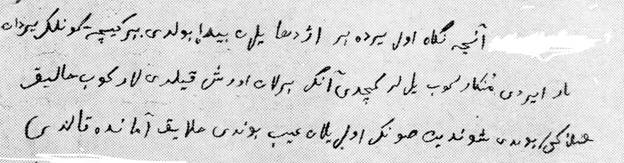 آنچه نگاه اول یرده بر اژدها یلان پیدا بولدی بر کیچه کونلک یردان
بار ایردی کوب یل لر کیچدی آنکر برلان اورش قیلدی لار کوب خالیق
بولدی شوندین صونک اول یلان غیب بولدی خلایق آمانده قالدی